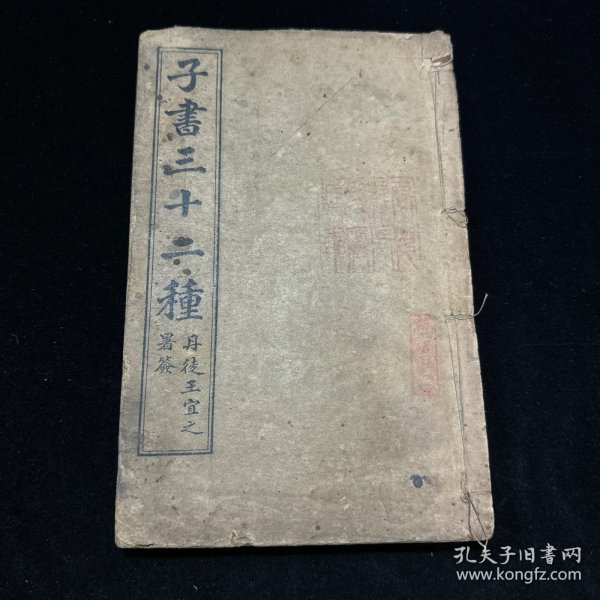 子書三十二種
丹徒王宜之
署簽
孔夫子旧书网
www.kongfz.com